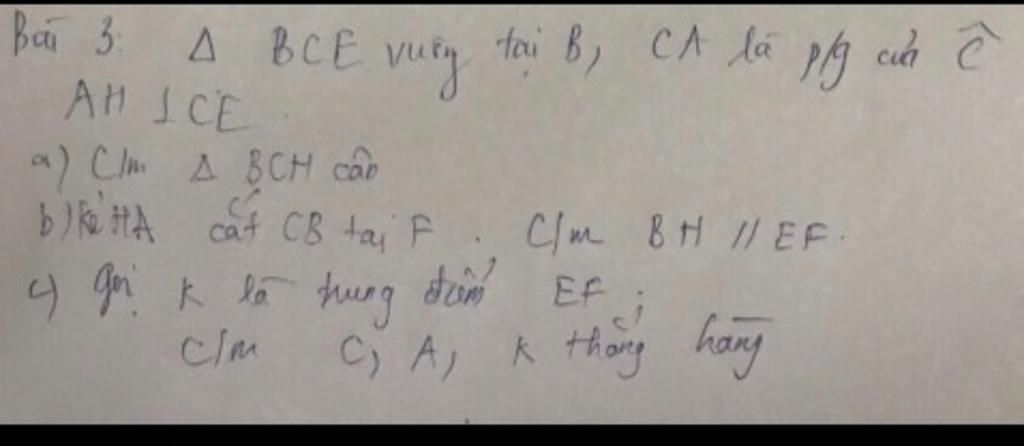 Bài 3: Δ BCE vuông tại B, CA là p/g của Ĉ
AH ⊥ CE.
a) C/m Δ BCH cân
b) Kẻ HA cắt CB tại F. C/m BH // EF.
c) Gọi K là trung điểm EF;
C/m C, A, K thẳng hàng